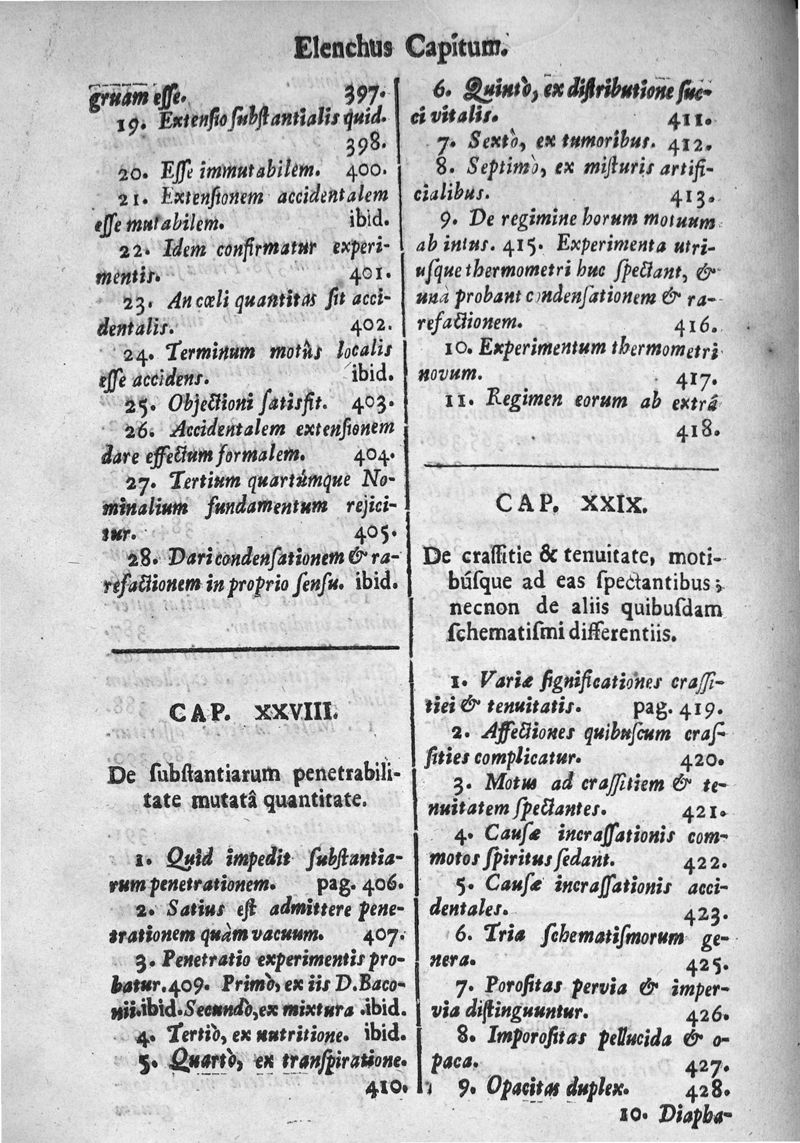 Elenchus Capitum.
gruam eſſe. 397.
19. Extenſio ſubſtantialis quid.
398.
20. Eſſe immutabilem. 400.
21. Extenſionem accidentalem
eſſe mutabilem. ibid.
22. Idem confirmatur experi-
mentis. 401.
23. An cœli quantitas ſit acci-
dentalis. 402.
24. Terminum motûs localis
eſſe accidens. ibid.
25. Objectioni ſatisfit. 403.
26. Accidentalem extenſionem
dare effectum formalem. 404.
27. Tertium quartúmque No-
minalium fundamentum rejici-
tur. 405.
28. Dari condenſationem & ra-
refactionem in proprio ſenſu. ibid.
CAP. XXVIII.
De ſubſtantiarum penetrabili-
tate mutatâ quantitate.
1. Quid impedit ſubſtantia-
rum penetrationem. pag. 406.
2. Satius eſt admittere pene-
trationem quàm vacuum. 407.
3. Penetratio experimentis pro-
batur. 409. Primò, ex iis D. Baco-
nii. ibid. Secundò, ex mixtura. ibid.
4. Tertiò, ex nutritione. ibid.
5. Quartò, ex tranſpiratione.
410.
6. Quintò, ex diſtributione ſuc-
ci vitalis. 411.
7. Sextò, ex tumoribus. 412.
8. Septimò, ex miſturis artifi-
cialibus. 413.
9. De regimine horum motuum
ab intus. 415. Experimenta utri-
uſque thermometri huc ſpectant, &
una probant condenſationem & ra-
refactionem. 416.
10. Experimentum thermometri
novum. 417.
11. Regimen eorum ab extrâ
418.
CAP. XXIX.
De craſſitie & tenuitate, moti-
búſque ad eas ſpectantibus;
necnon de aliis quibuſdam
ſchematiſmi differentiis.
1. Variæ ſignificationes craſſi-
tiei & tenuitatis. pag. 419.
2. Affectiones quibuſcum craſ-
ſities complicatur. 420.
3. Motus ad craſſitiem & te-
nuitatem ſpectantes. 421.
4. Cauſæ incraſſationis com-
motos ſpiritus ſedant. 422.
5. Cauſæ incraſſationis acci-
dentales. 423.
6. Tria ſchematiſmorum ge-
nera. 425.
7. Poroſitas pervia & imper-
via diſtinguuntur. 426.
8. Imporoſitas pellucida & o-
paca. 427.
9. Opacitas duplex. 428.
10. Diapha-